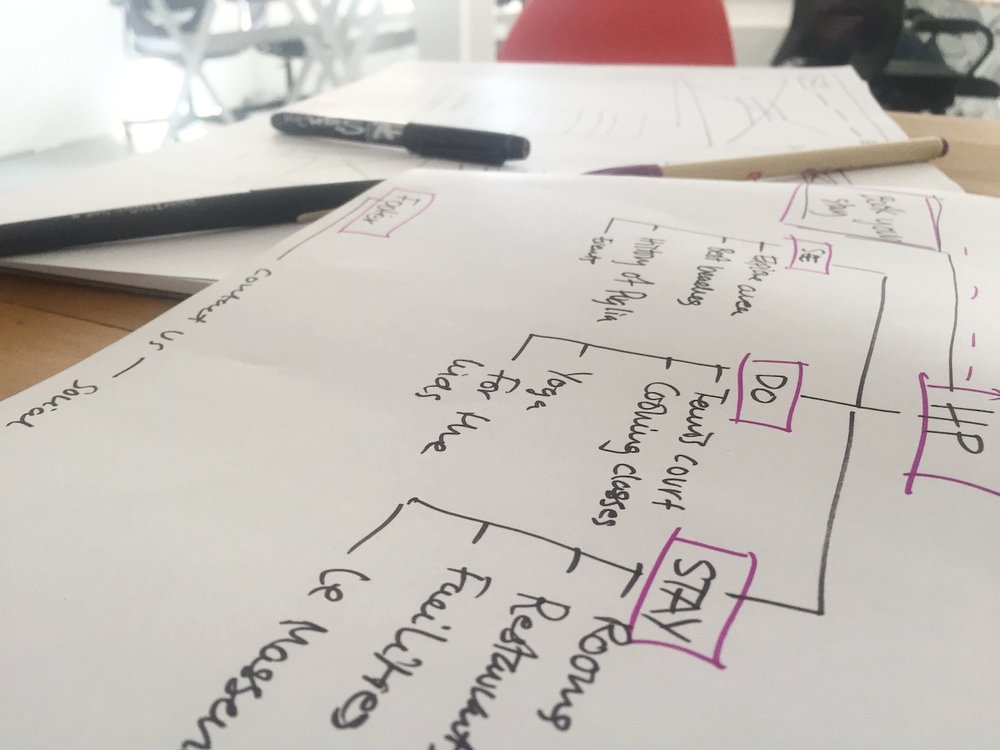 HP
Book your
stay
SEE
Explore area
Best beaches
History of Puglia
DO
Tennis court
Cooking classes
Yoga
For the
kids
STAY
Rooms
Restaurant
Facilities
Le Masseri
Footer
Contact us — Social